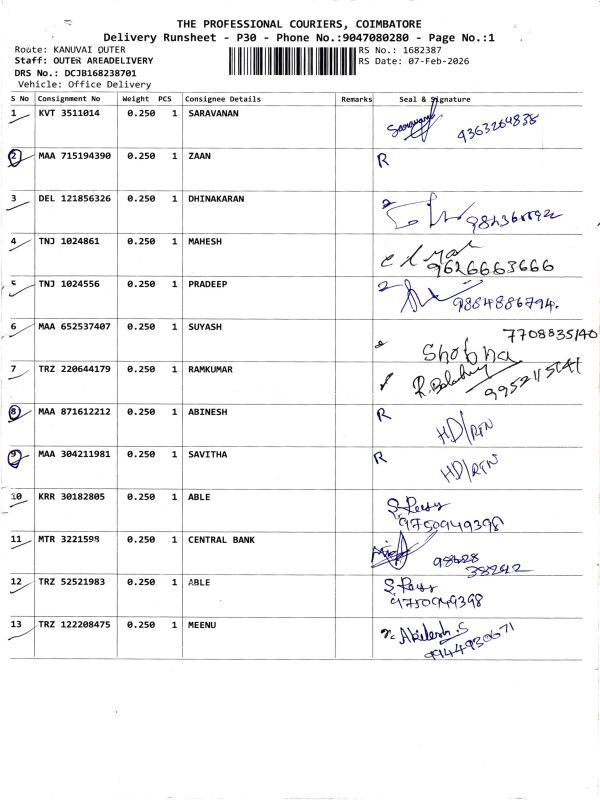 THE PROFESSIONAL COURIERS, COIMBATORE
Delivery Runsheet - P30 - Phone No.:9047080280 - Page No.:1
Route: KANUVAI OUTER RS No.: 1682387
Staff: OUTER AREADELIVERY RS Date: 07-Feb-2026
DRS No.: DCJB168238701
Vehicle: Office Delivery
S No Consignment No Weight PCS Consignee Details Remarks Seal & Signature
1 KVT 3511014 0.250 1 SARAVANAN
2 MAA 715194390 0.250 1 ZAAN R
3 DEL 121856326 0.250 1 DHINAKARAN
4 TNJ 1024861 0.250 1 MAHESH
9626663666
5 TNJ 1024556 0.250 1 PRADEEP
9884886794.
6 MAA 652537407 0.250 1 SUYASH 7708835140
Shobana
7 TRZ 220644179 0.250 1 RAMKUMAR
8 MAA 871612212 0.250 1 ABINESH R
HD/RTN
9 MAA 304211981 0.250 1 SAVITHA R
HD/RTN
10 KRR 30182805 0.250 1 ABLE
9750949398
11 MTR 3221598 0.250 1 CENTRAL BANK
98428
38242
12 TRZ 52521983 0.250 1 ABLE
9750949398
13 TRZ 122208475 0.250 1 MEENU Akilesh.S
9944930671